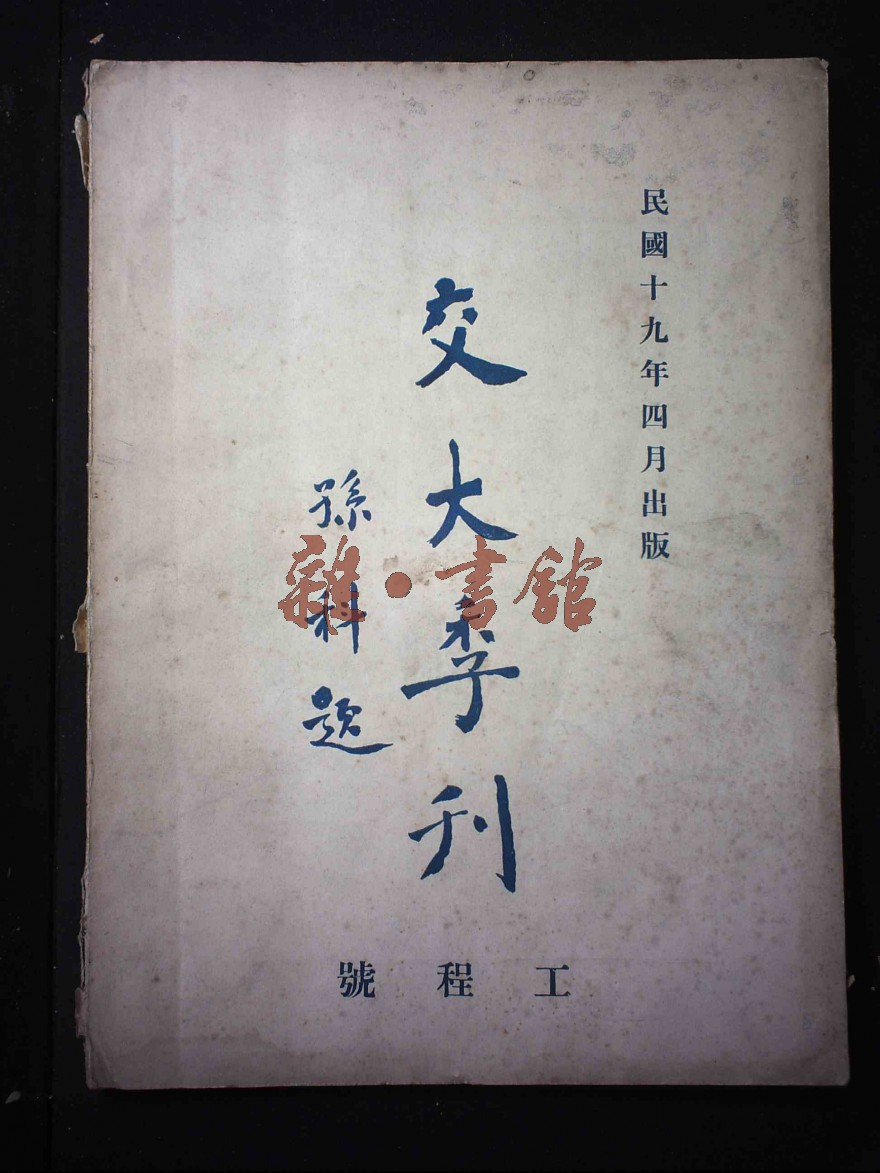 民國十九年四月出版
交大季刊
孫科題
工程號
雜•書館